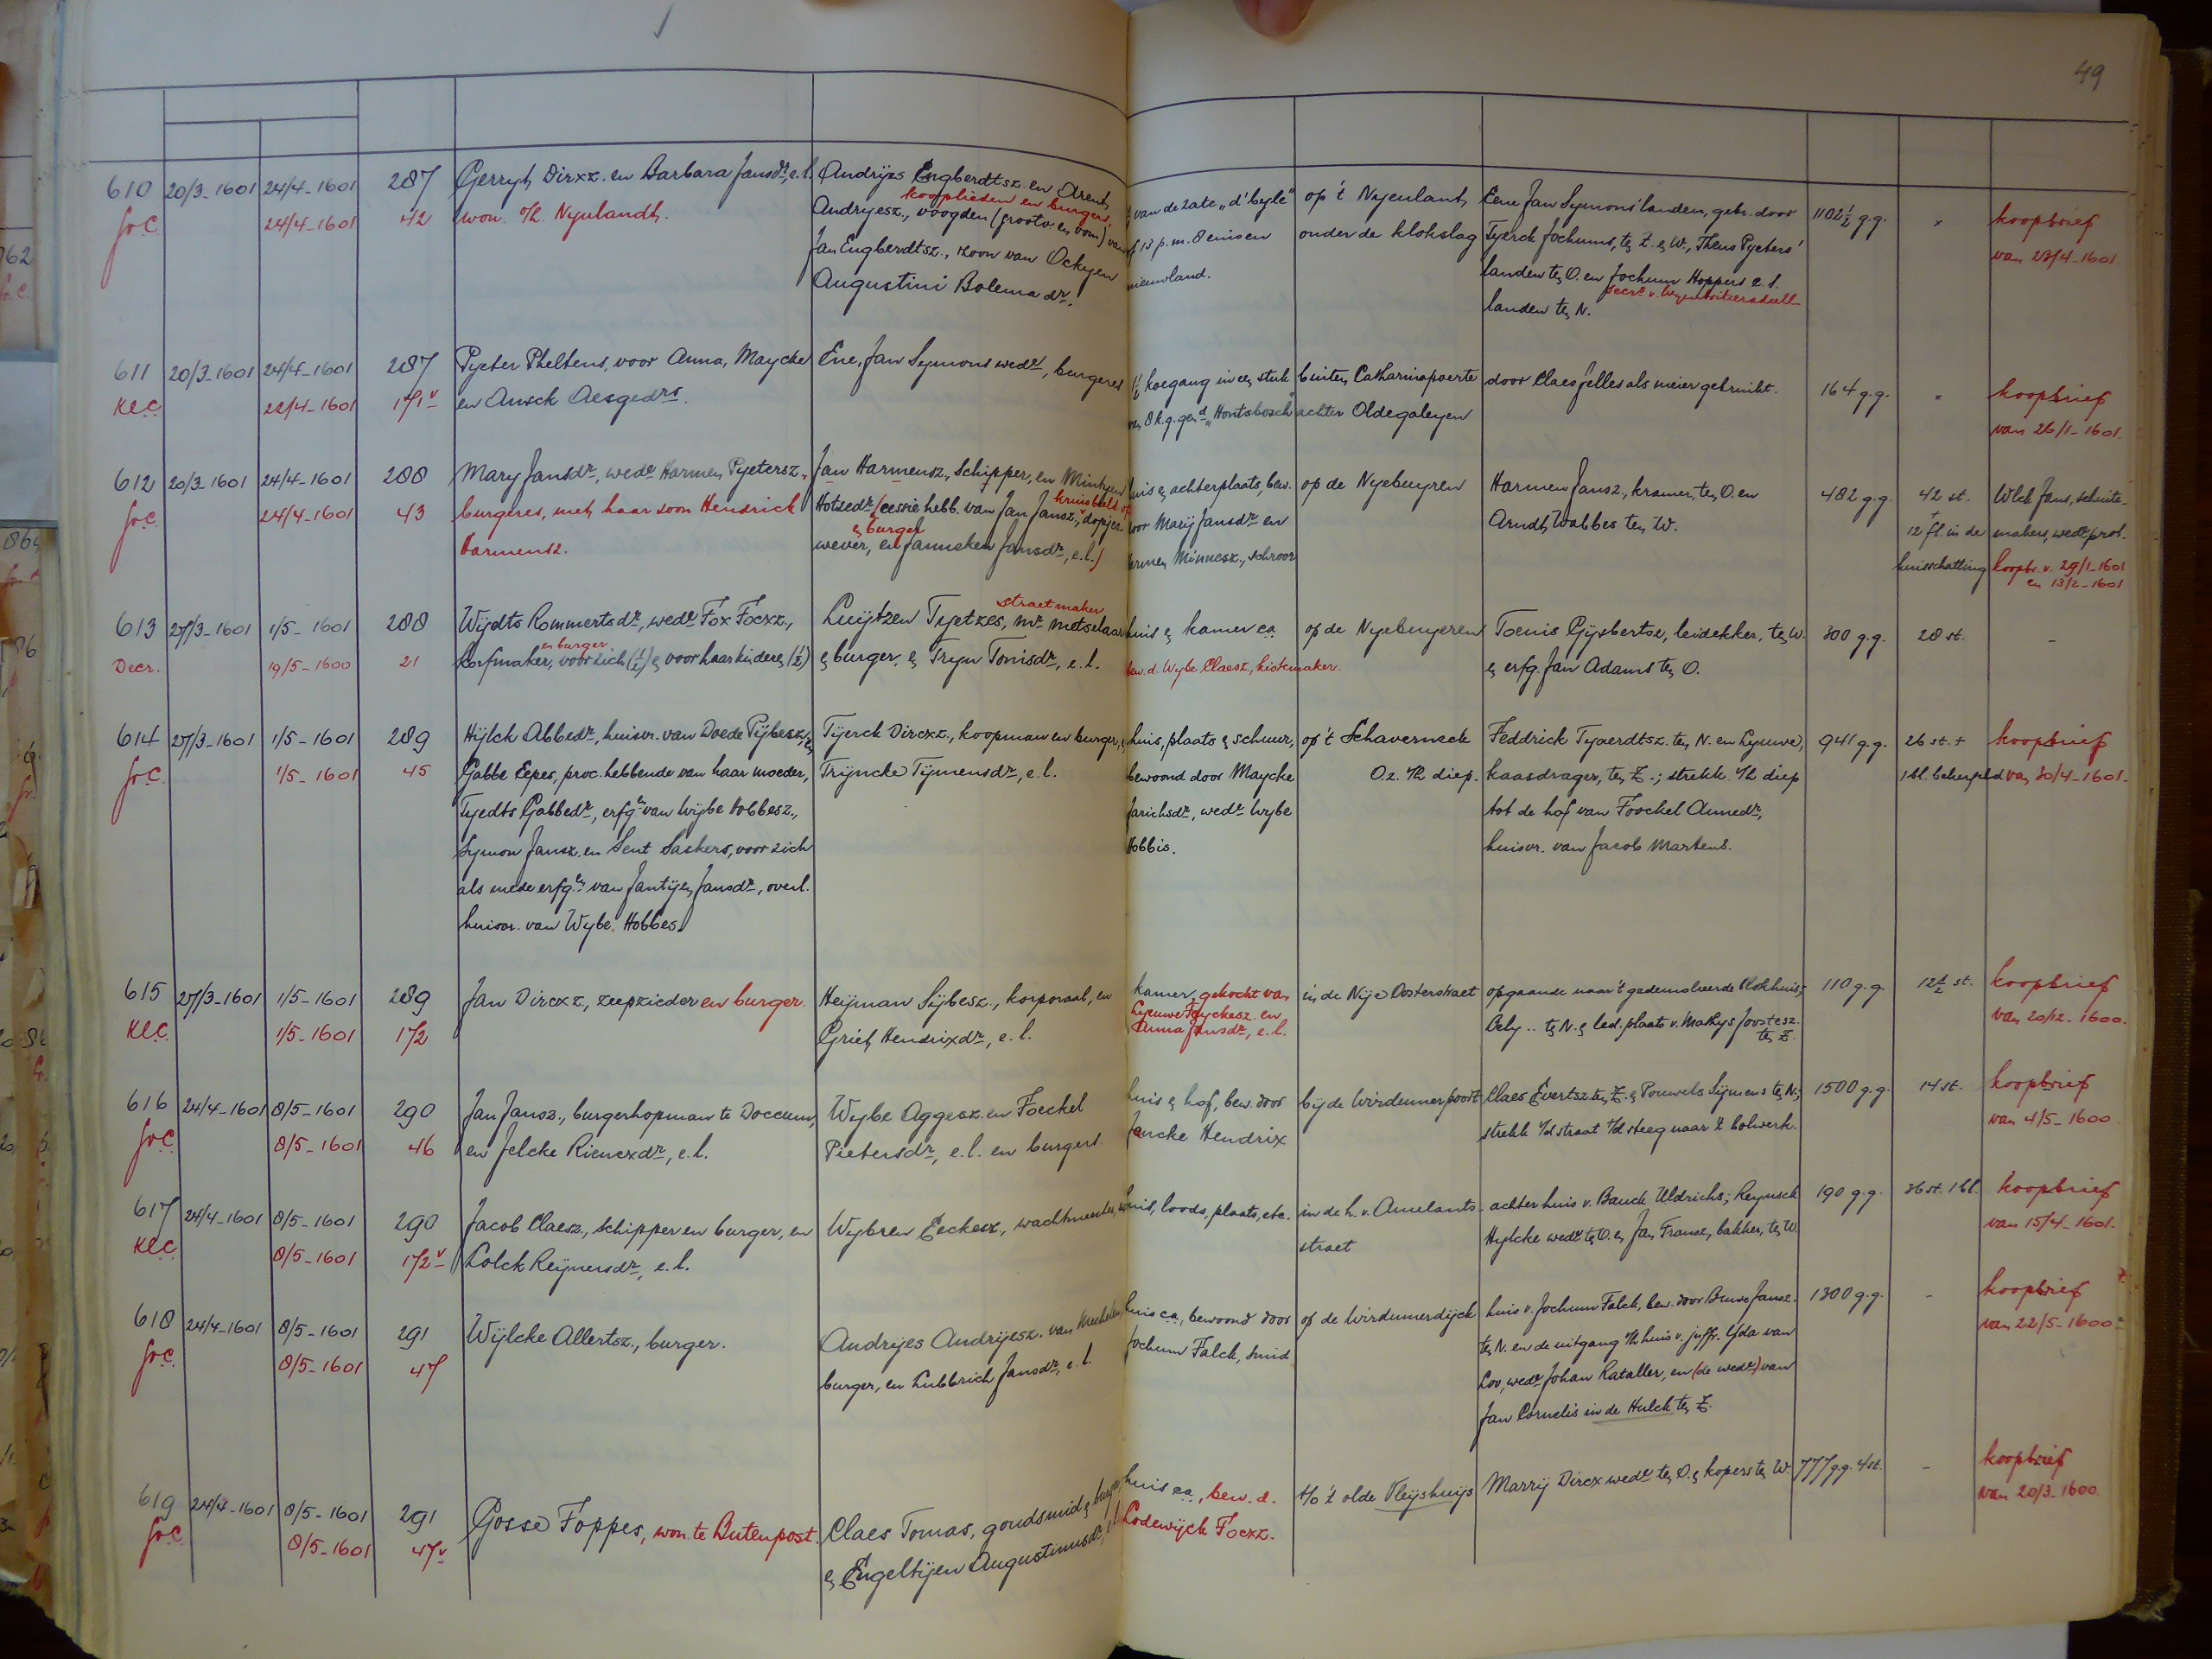 49
610 20/3-1601 24/4-1601 287 Gerryt Dirxz. en Barbara Jansdr, e.l. Andryes Engberdtsz. en Arent van de zate „d'Eyle" op 't Nyenlant Eene Jan Symons' landen, gebr. door 1102½ g.g. " koopbrief
kooplieden en burgers,
GrC 24/4-1601 42 won. o/h. Nynlandt. Andryesz., voogden (grootv. en oom) van of 13 p.m. 8 einsen onder de klokslag Tyerck Jochums, ten Z. en W., Theus Pyeters' van 23/4-1601
Jan Engberdtsz., zoon van Ockyen nieuwland. landen ten O. en Jochum Hoppers e.l.
Augustini Bolema dr. landen ten N.
611 20/3-1601 24/4-1601 287 Pyeter Pheltens, voor Anna, Maycke Ene, Jan Symons wedr, burgeres koegang in een stuk buiten Catharinapoorte door Claes Jelles als meier gebruikt. 164 g.g. " koopbrief
KlC 22/4-1601 171v en Ansck Aesgedrs. van 8 k.g. gend „Hontsbosch" achter Oldegaleyen van 26/1-1601.
612 20/3-1601 24/4-1601 288 Mary Jansdr, wedr Harmen Pyetersz., Jan Harmensz., schipper, en Mintyen huis en achterplaats, bew. op de Nyebuyren Harmen Jansz., kramer, ten O. en 482 g.g. 42 st. Wlck Jans, schuite-
GrC 24/4-1601 43 burgeres, met haar zoon Hendrick Hotsedr (cessie hebb. van Jan Jansz., dopjes- door Marij Jansdr en Arndt Wabbes ten W. + 12 fl. in de makers, wedr prot.
en burger
Harmensz. wever, en Janneken Jansdr, e.l.) Minnesz., schroor huisschatting koopbr. v. 29/1-1601
en 13/2-1601
613 27/3-1601 1/5-1601 288 Wydts Rommertsdr, wedr Fox Foexz., Luytzen Tyetzes, mr metselaar huis en kamer c.a. op de Nyebuyeren Toenis Gysbertsz, leidekker, ten W. 300 g.g. 28 st. -
en burger straetmaker
Decr. 19/5-1600 21 Korfmaker, voor zich (½) en voor haar kinderen (½) en burger, en Tryn Tonisdr, e.l. bew. d. Wybe Claesz., kistemaker. en erfg. Jan Adams ten O.
614 27/3-1601 1/5-1601 289 Hylck Abbedr, huisvr. van Doede Pybesz., en Tyerck Dircxz., koopman en burger, en huis, plaats en schuur, op 't Schaverneck Feddrick Tyaerdtsz. ten N. en Lyuwe, 941 g.g. 26 st. + koopbrief
GrC 1/5-1601 45 Gabbe Eepes, proc. hebbende van haar moeder, Tryncke Tymensdr, e.l. bewoond door Maycke O.z. o/h diep. kaasdrager, ten Z.; strekk. o/h diep 1 bl. bekengeld van 30/4-1601.
Tyedts Gabbedr, erfgen van Wybe Hobbesz., Jarichsdr, wedr Wybe tot de hof van Foockel Annedr,
Symon Jansz. en Sent Saskers, voor zich Hobbis. huisvr. van Jacob Martens.
als mede erfgen van Jantyen Jansdr, overl.
huisvr. van Wybe Hobbes.
615 27/3-1601 1/5-1601 289 Jan Dircxz., zeepzieder en burger. Heyman Sybesz., korporaal, en kamer, gekocht van in de Nije Oosterstraet opgaande naar 't gedemolieerde Blokhuis; 110 g.g. 12½ st. koopbrief
KlC 1/5-1601 172 Griet Hendrixdr, e.l. Lyeuwe Fryckesz. en Cely .. ten N. en led. plaats v. Mathys Joostesz. van 20/12-1600.
Anna Jansdr, e.l. ten Z.
616 24/4-1601 8/5-1601 290 Jan Jansz., burgerhopman te Doccum, Wybe Aggesz. en Foeckel huis en hof, bew. door bij de Wirdumerpoort Claes Evertsz ten Z. en Pouwels Symens ten N.; 1500 g.g. 14 st. koopbrief
GrC 8/5-1601 46 en Jelcke Riencxdr, e.l. Pietersdr, e.l. en burgers. Jancke Hendrix strekk. v/d straat t/d steeg naar 't bolwerk. van 4/5-1600
617 24/4-1601 8/5-1601 290 Jacob Claesz., schipper en burger, en Wybren Eeckesz., wachtmeester, huis, loods, plaats, etc. in de h. v. Amelants- achter huis v. Bauck Uldrichs; Reynsck 190 g.g. 36 st. 1 bl. koopbrief
KlC 8/5-1601 172v Lolck Reynersdr, e.l. straet Hylcke wedr ten O. en Jan Fransz., bakker, ten W. van 15/4-1601.
618 24/4-1601 8/5-1601 291 Wylcke Allertsz., burger. Andryes Andryesz. van Mechelen, huis c.a., bewoond door op de Wirdumerdyck huis v. Jochum Falck, bew. door Bauwe Jansz. 1300 g.g. - koopbrief
GrC 8/5-1601 47 burger, en Lubbrich Jansdr, e.l. Jochum Falck, smid ten N. en de uitgang v/h huis v. juffr. Yda van van 22/5-1600
Loo, wedr Johan Rataller, en (de wedr) van
Jan Cornelis in de Hulck ten Z.
619 24/4-1601 8/5-1601 291 Gosse Foppes, won. te Butenpost. Claes Tomas, goudsmid en burger, huis c.a., bew. d. t/o 't olde Vleyshuys Marrij Dircx wedr ten O. en kopers ten W. 777 g.g. 4 st. - koopbrief
GrC 8/5-1601 47v en Engeltyen Augustinusdr, e.l. Lodewyck Foexz. van 20/3-1600